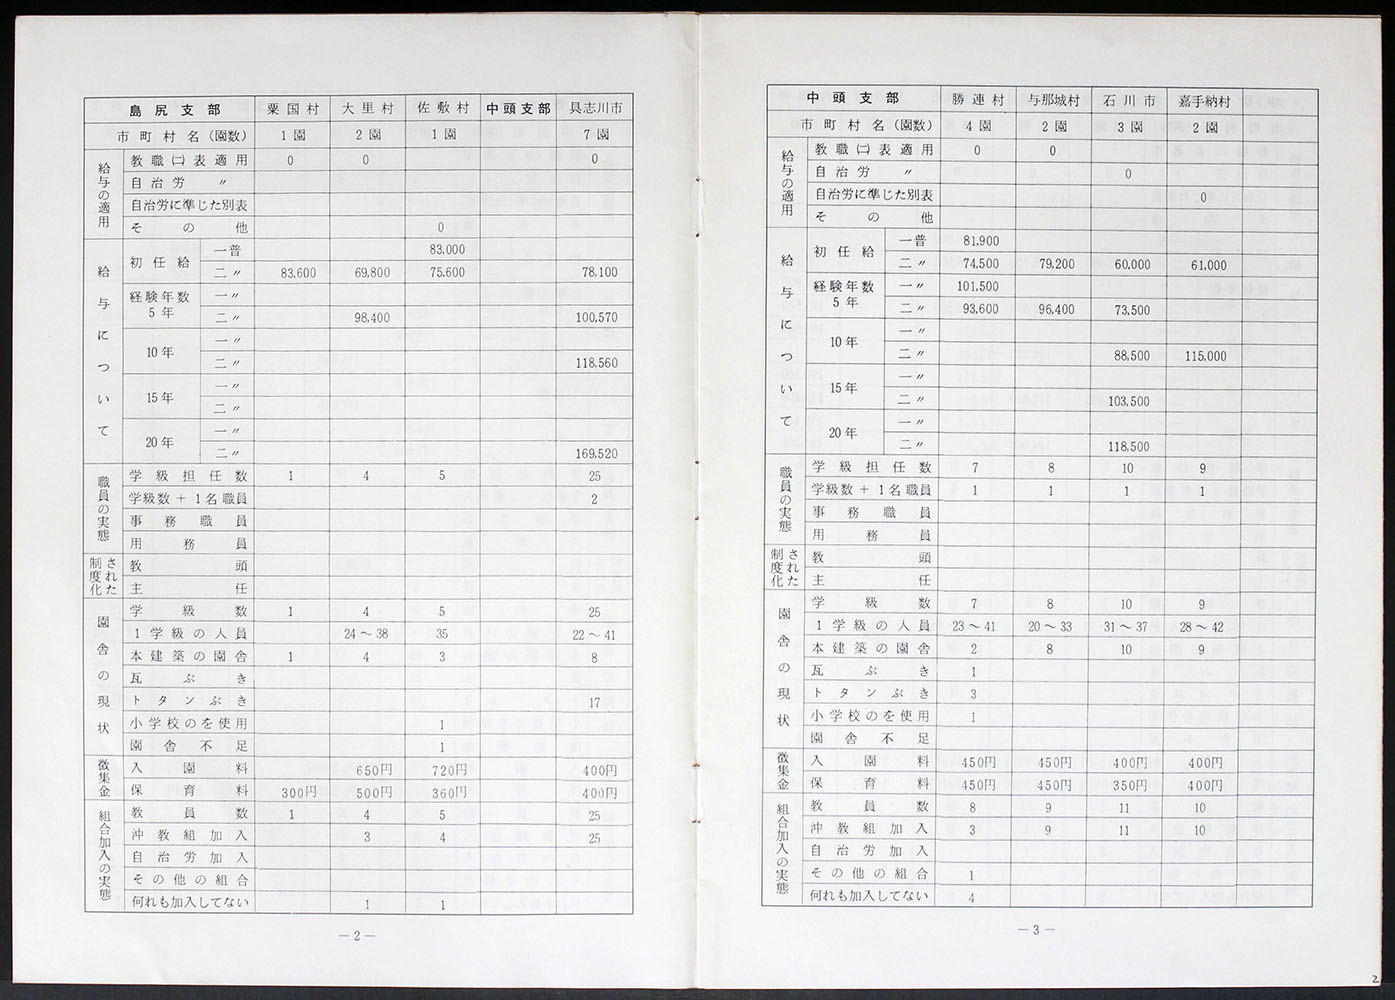 島尻支部 粟国村 大里村 佐敷村 中頭支部 具志川市
市町村名(園数) 1園 2園 1園 7園
給与の適用
教職㈡表適用 0 0 0
自治労 〃
自治労に準じた別表
その他 0
給与について
初任給 一普 83,000
二〃 83,600 69,800 75,600 78,100
経験年数5年 一〃
二〃 98,400 100,570
10年 一〃
二〃 118,560
15年 一〃
二〃
20年 一〃
二〃 169,520
職員の実態
学級担任数 1 4 5 25
学級数+1名職員 2
事務職員
用務員
制度化された
教頭
主任
園舎の現状
学級数 1 4 5 25
1学級の人員 24~38 35 22~41
本建築の園舎 1 4 3 8
瓦ぶき
トタンぶき 17
小学校のを使用 1
園舎不足 1
徴集金
入園料 650円 720円 400円
保育料 300円 500円 360円 400円
組合加入の実態
教員数 1 4 5 25
沖教組加入 3 4 25
自治労加入
その他の組合
何れも加入してない 1 1
—2—
中頭支部 勝連村 与那城村 石川市 嘉手納村
市町村名(園数) 4園 2園 3園 2園
給与の適用
教職㈡表適用 0 0
自治労 〃 0
自治労に準じた別表 0
その他
給与について
初任給 一普 81,900
二〃 74,500 79,200 60,000 61,000
経験年数5年 一〃 101,500
二〃 93,600 96,400 73,500
10年 一〃
二〃 88,500 115,000
15年 一〃
二〃 103,500
20年 一〃
二〃 118,500
職員の実態
学級担任数 7 8 10 9
学級数+1名職員 1 1 1 1
事務職員
用務員
制度化された
教頭
主任
園舎の現状
学級数 7 8 10 9
1学級の人員 23~41 20~33 31~37 28~42
本建築の園舎 2 8 10 9
瓦ぶき 1
トタンぶき 3
小学校のを使用 1
園舎不足
徴集金
入園料 450円 450円 400円 400円
保育料 450円 450円 350円 400円
組合加入の実態
教員数 8 9 11 10
沖教組加入 3 9 11 10
自治労加入
その他の組合 1
何れも加入してない 4
—3—
2